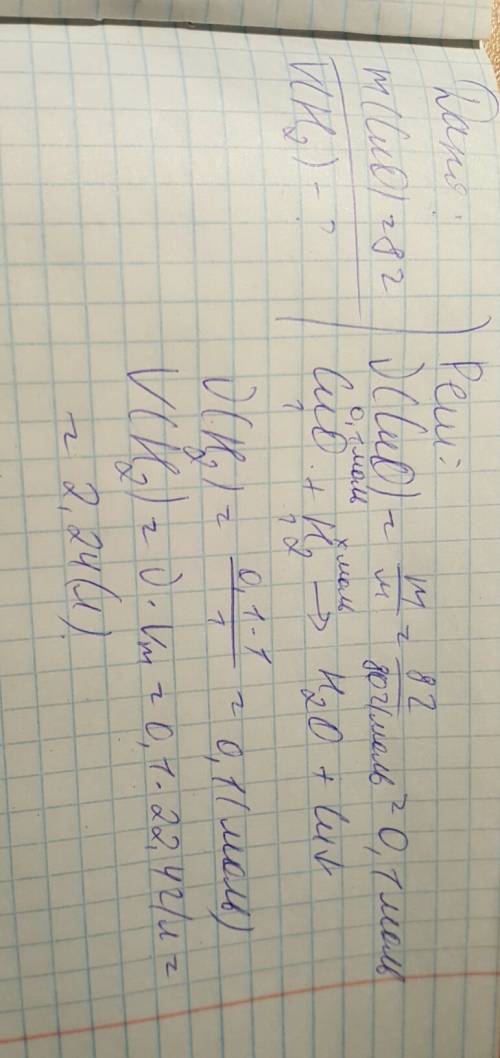 Дано:
m(CuO)=8г
V(H2)-?
Реш:
ν(CuO)=m/M=8г/80г/моль=0,1моль
0,1моль x моль
CuO + H2 → H2O + Cu↓
1 1
ν(H2)=0,1·1/1=0,1(моль)
V(H2)=ν·Vm=0,1·22,4г/л=
=2,24(л)